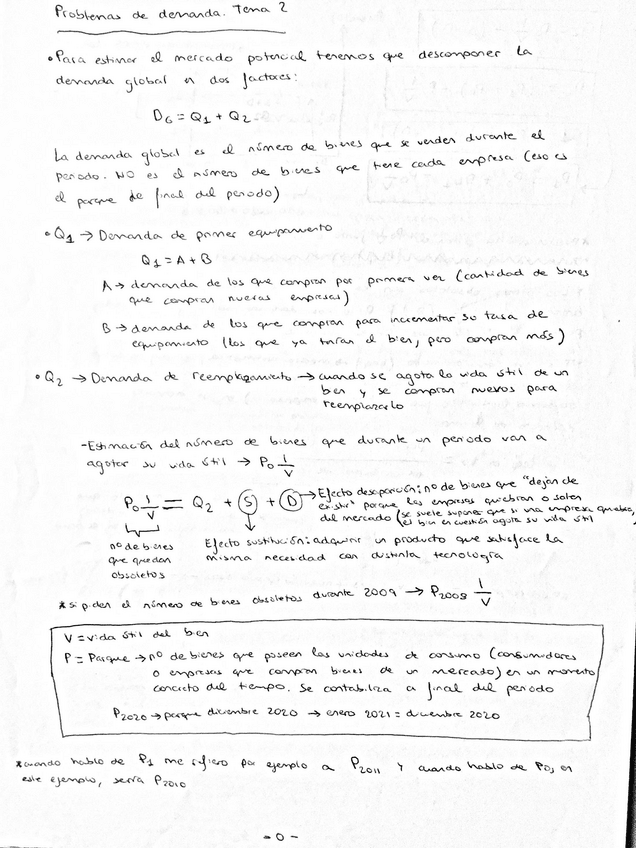 Problemas de demanda. Tema 2
• Para estimar el mercado potencial tenemos que descomponer la
demanda global en dos factores:
DG = Q1 + Q2
La demanda global es el número de bienes que se venden durante el
periodo. NO es el número de bienes que tiene cada empresa (eso es
el parque de final del periodo)
• Q1 → Demanda de primer equipamiento
Q1 = A + B
A → demanda de los que compran por primera vez (cantidad de bienes
que compran nuevas empresas)
B → demanda de los que compran para incrementar su tasa de
equipamiento (los que ya tenían el bien, pero compran más)
• Q2 → Demanda de reemplazamiento → cuando se agota la vida útil de un
bien y se compran nuevos para
reemplazarlo
- Estimación del número de bienes que durante un periodo van a
agotar su vida útil → P0 1/V
P0 1/V = Q2 + S + D → Efecto desaparición: nº de bienes que "dejan de
existir" porque las empresas quiebran o salen
del mercado (se suele suponer que si una empresa quiebra,
el bien en cuestión agota su vida útil
nº de bienes
que quedan
obsoletos
Efecto sustitución: adquirir un producto que satisface la
misma necesidad con distinta tecnología
* si piden el número de bienes obsoletos durante 2009 → P2008 1/V
V = vida útil del bien
P = Parque → nº de bienes que poseen las unidades de consumo (consumidores
o empresas que compran bienes de un mercado) en un momento
concreto del tiempo. Se contabiliza a final del periodo
P2020 → parque diciembre 2020 → enero 2021 = diciembre 2020
* cuando hablo de P1 me refiero por ejemplo a P2011 y cuando hablo de P0, en
este ejemplo, sería P2010
- 0 -